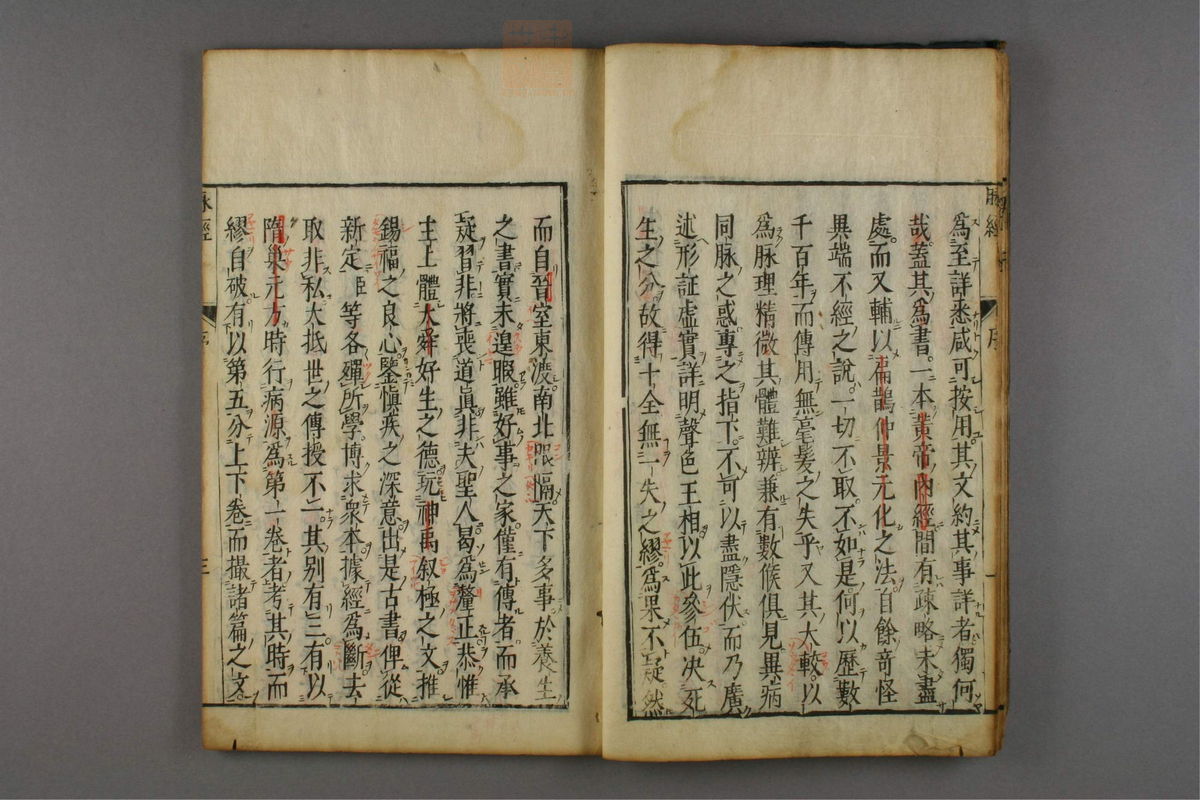 爲至詳悉咸可按用其文約其事詳者獨何
哉蓋其爲書一本黃帝內經間有疎略未盡
處而又輔以扁鵲仲景元化之法自餘奇怪
異端不經之說一切不取不如是何以歷數
千百年而傳用無毫髮之失乎又其大較以
爲脉理精微其體難辨兼有數候俱見異病
同脉之惑專之指下不可以盡隱伏而乃廣
述形証虛實詳明聲色王相以此參伍決死
生之分故得十全無一失之繆爲果不疑然
脉經 序
而自晉室東渡南北限隔天下多事於養生
之書實未遑暇雖好事之家僅有傳者而承
疑習非將喪道眞非夫聖人曷爲釐正恭惟
主上體大舜好生之德玩神禹叙極之文推
錫福之良心鑒愼疾之深意出是古書俾從
新定臣等各殫所學博求衆本據經爲斷去
取非私大抵世之傳授不一其別有三有以
隋巢元方時行病源爲第一卷者考其時而
繆自破有以第五分上下卷而撮諸篇之文
脉經 序 三